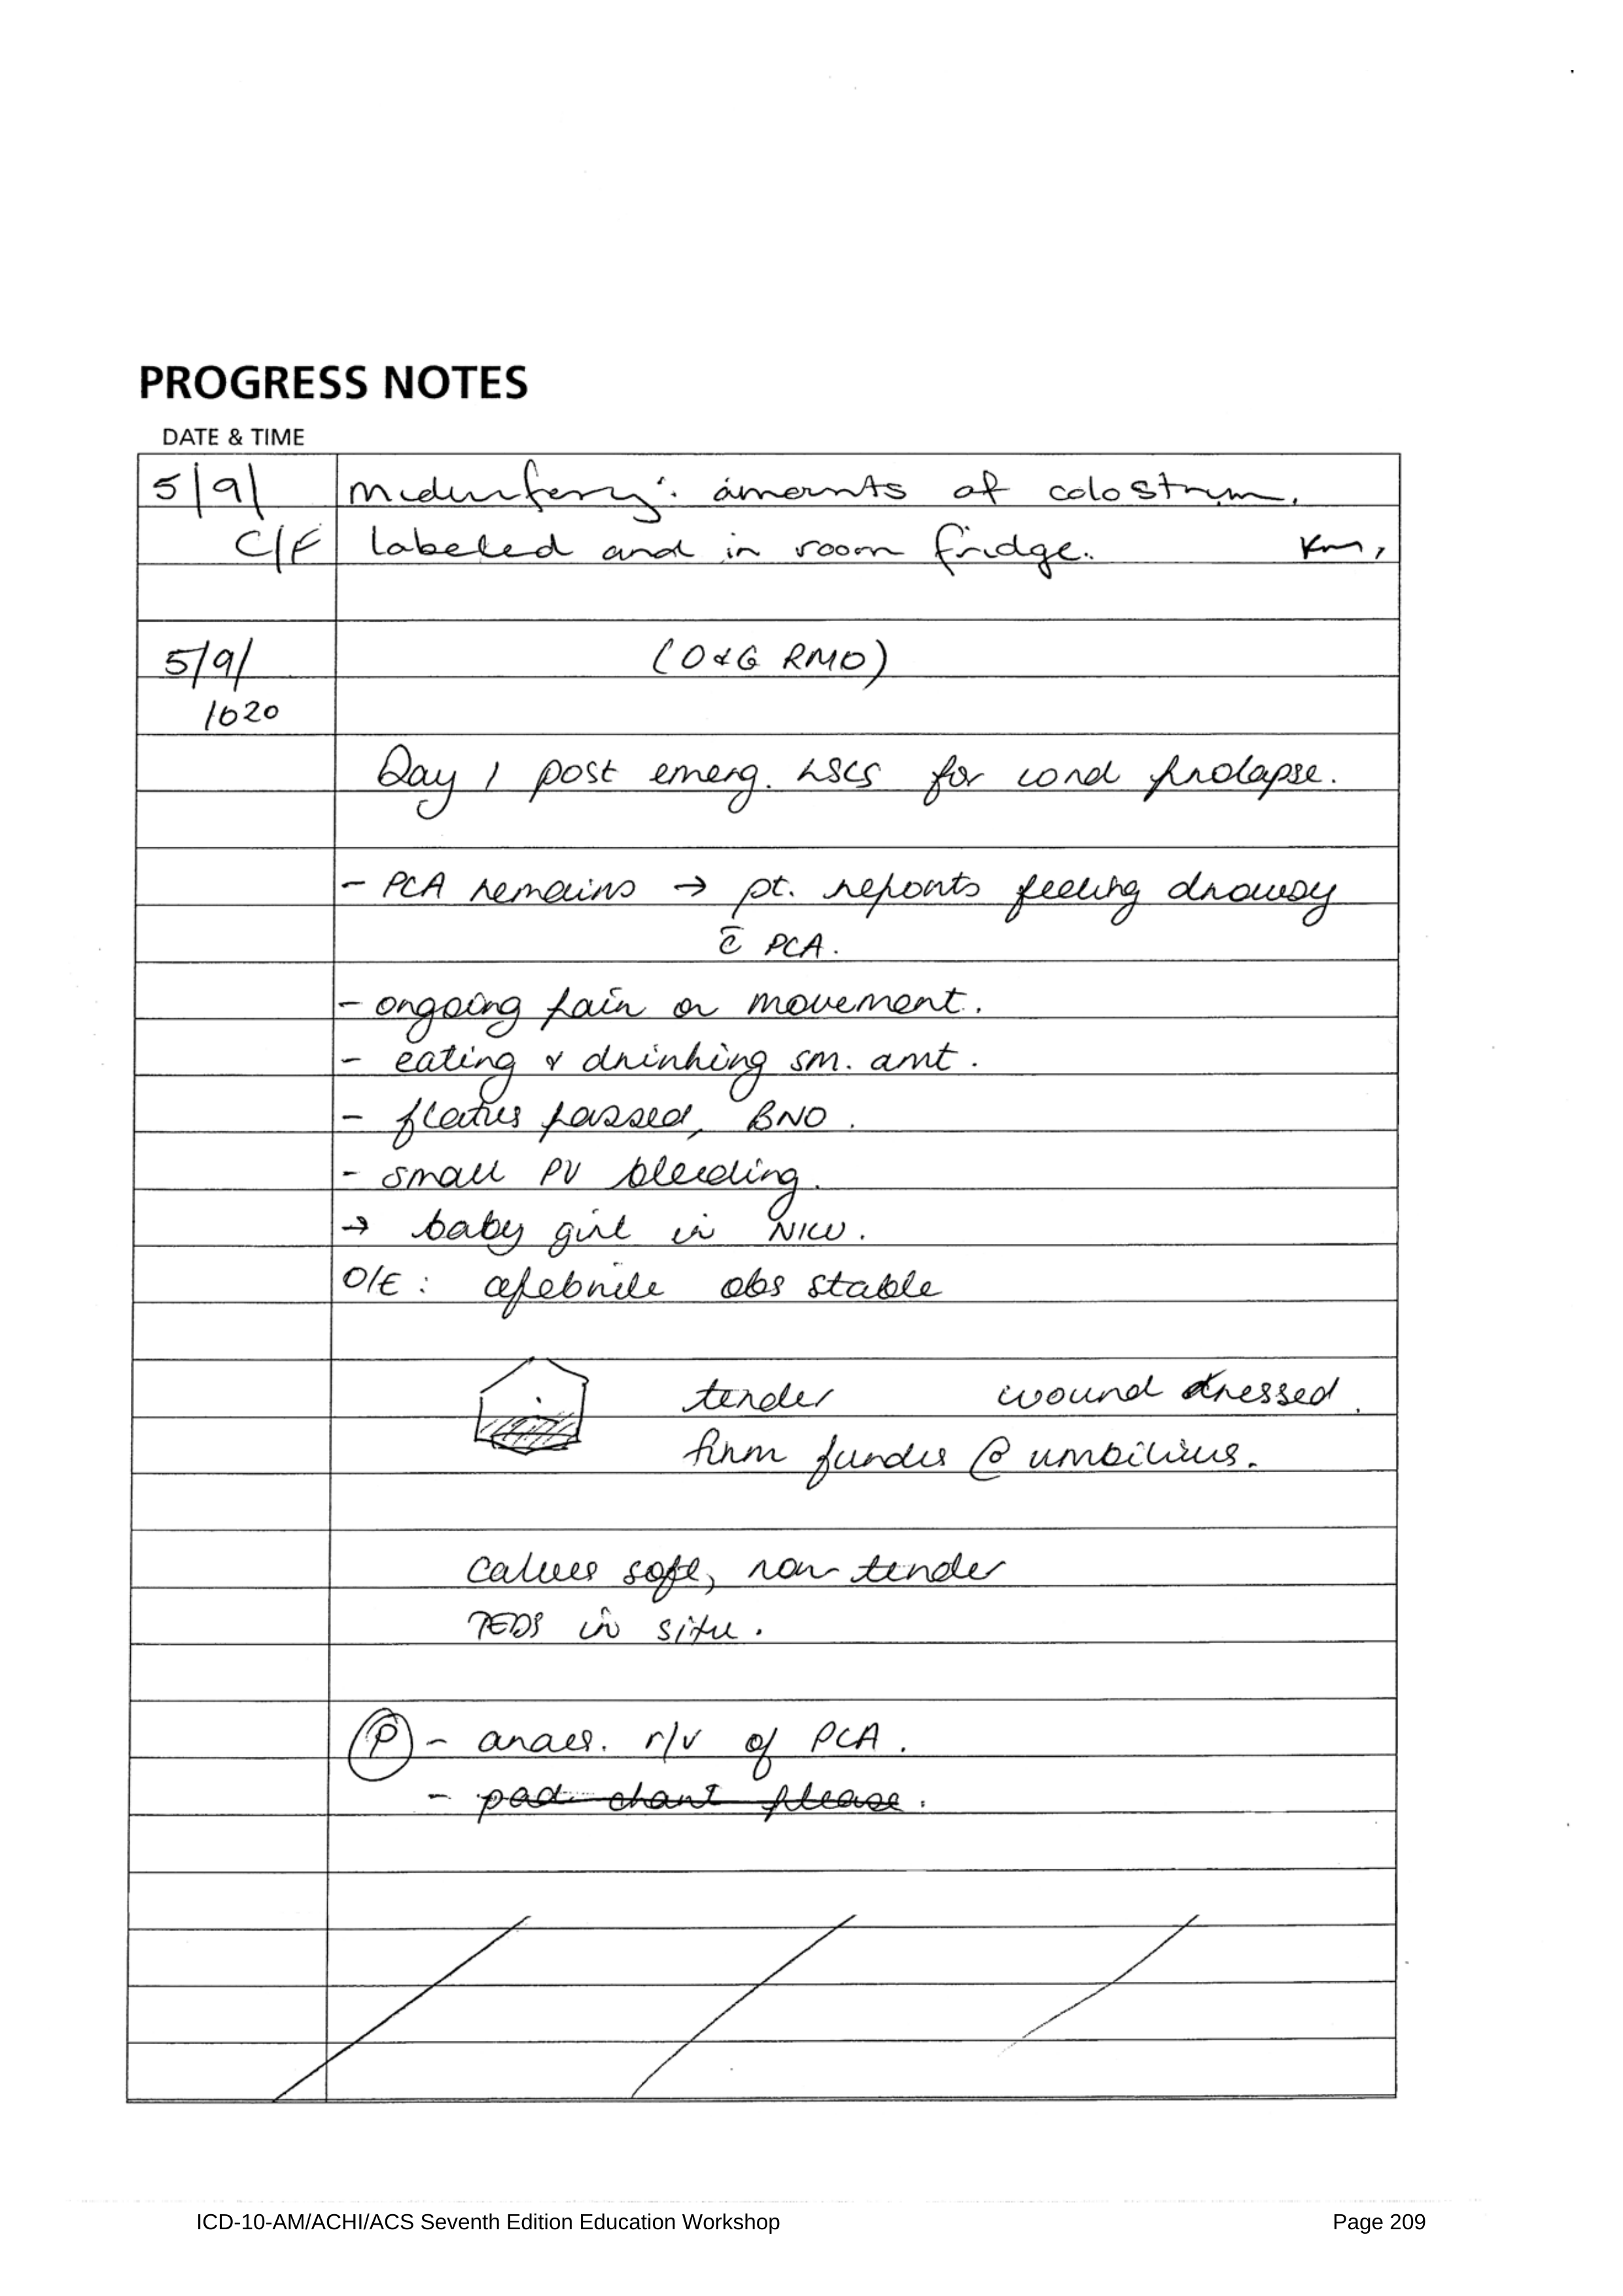 PROGRESS NOTES
DATE & TIME
5/9/ Midwifery: amounts of colostrum.
C/F labeled and in room fridge. Km,
5/9/ (O&G RMO)
1020
Day 1 post emerg. LSCS for cord prolapse.
- PCA remains → pt. reports feeling drowsy
c̄ PCA.
- ongoing pain on movement.
- eating & drinking sm. amt.
- flatus passed, BNO.
- small PV bleeding.
→ baby girl in NICU.
O/E: afebrile obs stable
tender wound dressed.
firm fundus @ umbilicus.
calves soft, non-tender
TEDS in situ.
(P) - anaes. r/v of PCA.
- pad chart please.
ICD-10-AM/ACHI/ACS Seventh Edition Education Workshop Page 209